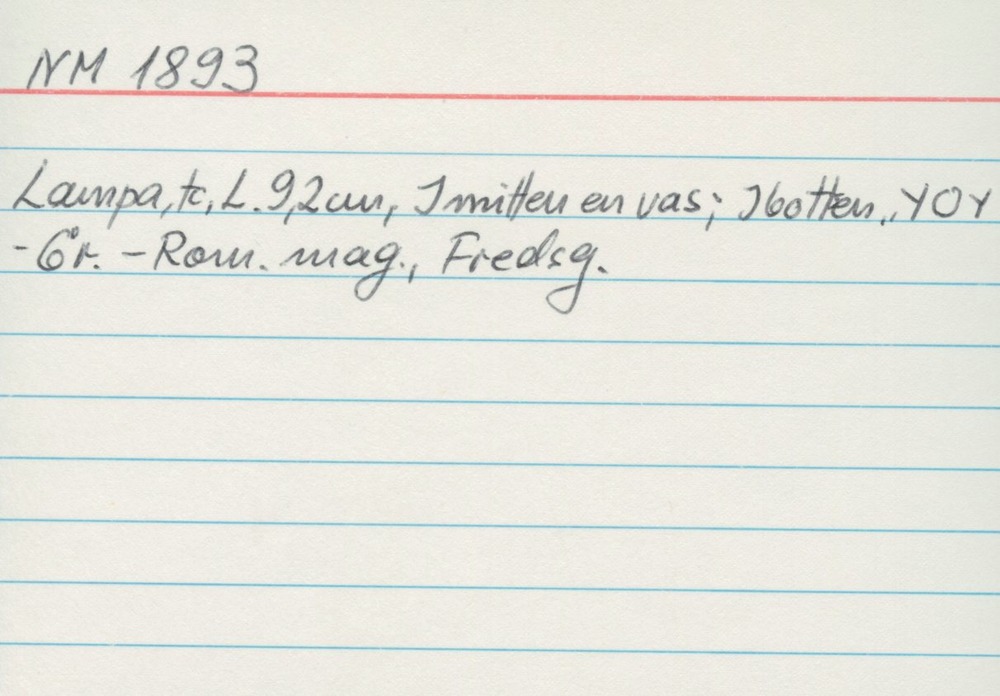 NM 1893
Lampa, tc, L. 9,2 cm, I mitten en vas; I botten „YOY
-Gr. - Rom. mag., Fredsg.